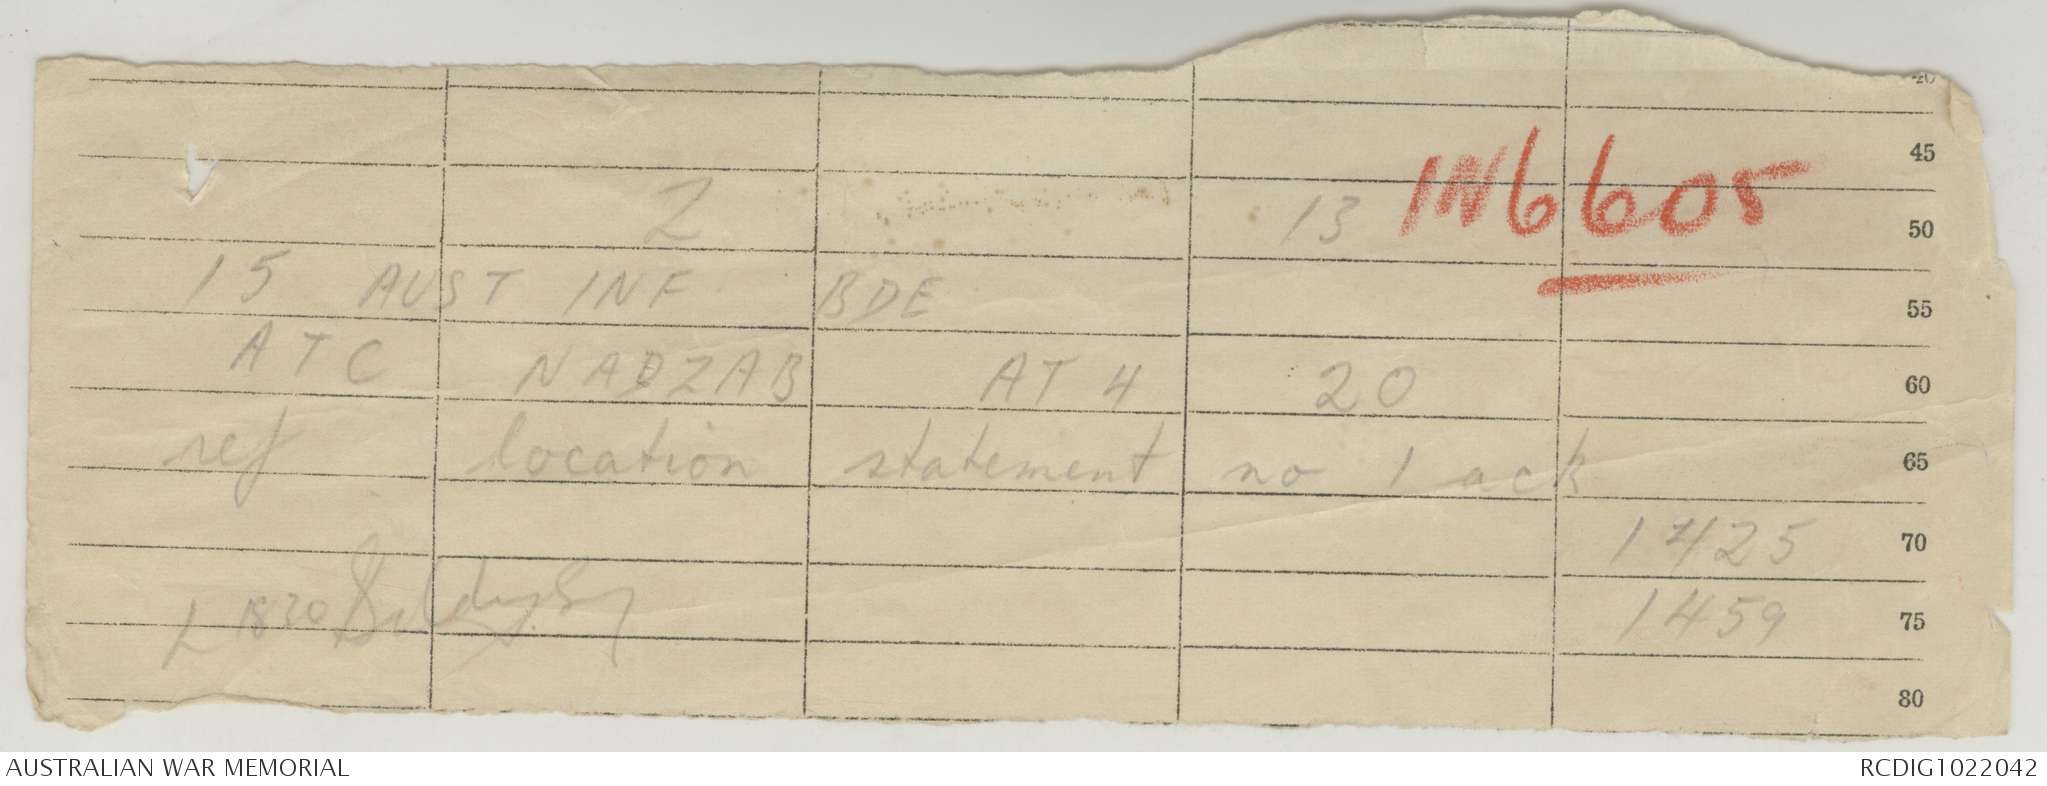 40
45
2 13 IN6605 50
15 AUST INF BDE 55
ATC NADZAB AT 4 20 60
ref location statement no 1 ack 65
1425 70
L 1830 1459 75
80
AUSTRALIAN WAR MEMORIAL RCDIG1022042